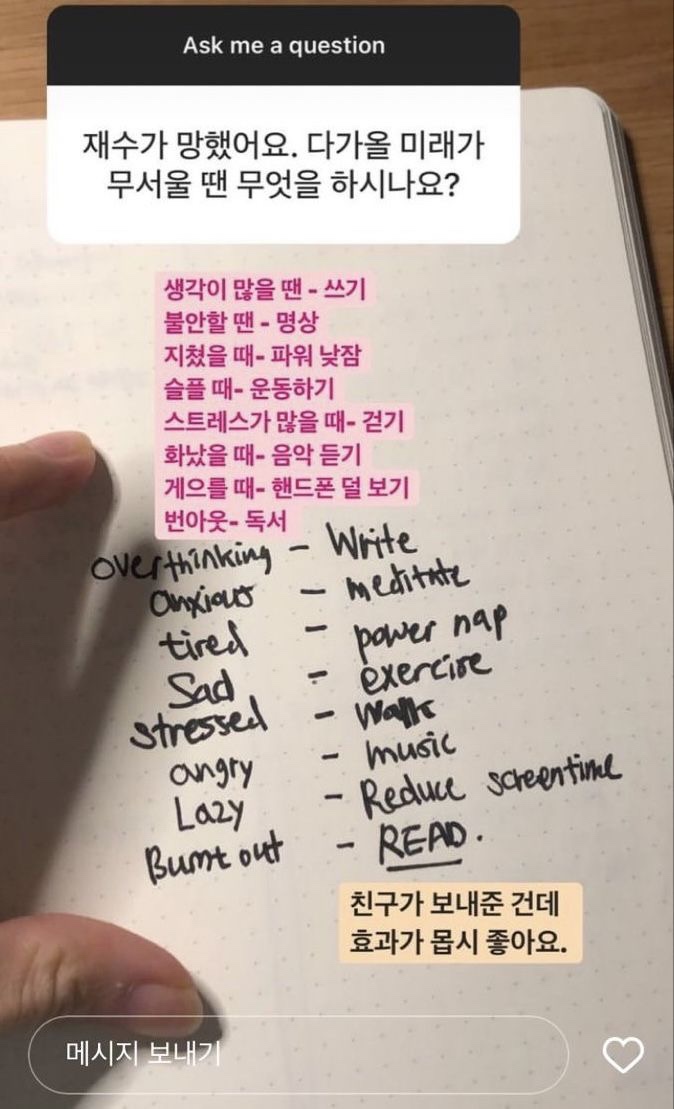 Ask me a question
재수가 망했어요. 다가올 미래가
무서울 땐 무엇을 하시나요?
생각이 많을 땐 - 쓰기
불안할 땐 - 명상
지쳤을 때- 파워 낮잠
슬플 때- 운동하기
스트레스가 많을 때- 걷기
화났을 때- 음악 듣기
게으를 때- 핸드폰 덜 보기
번아웃- 독서
overthinking - Write
anxious - meditate
tired - power nap
Sad - exercise
stressed - walk
angry - music
Lazy - Reduce screentime
Burnt out - READ.
친구가 보내준 건데
효과가 몹시 좋아요.
메시지 보내기